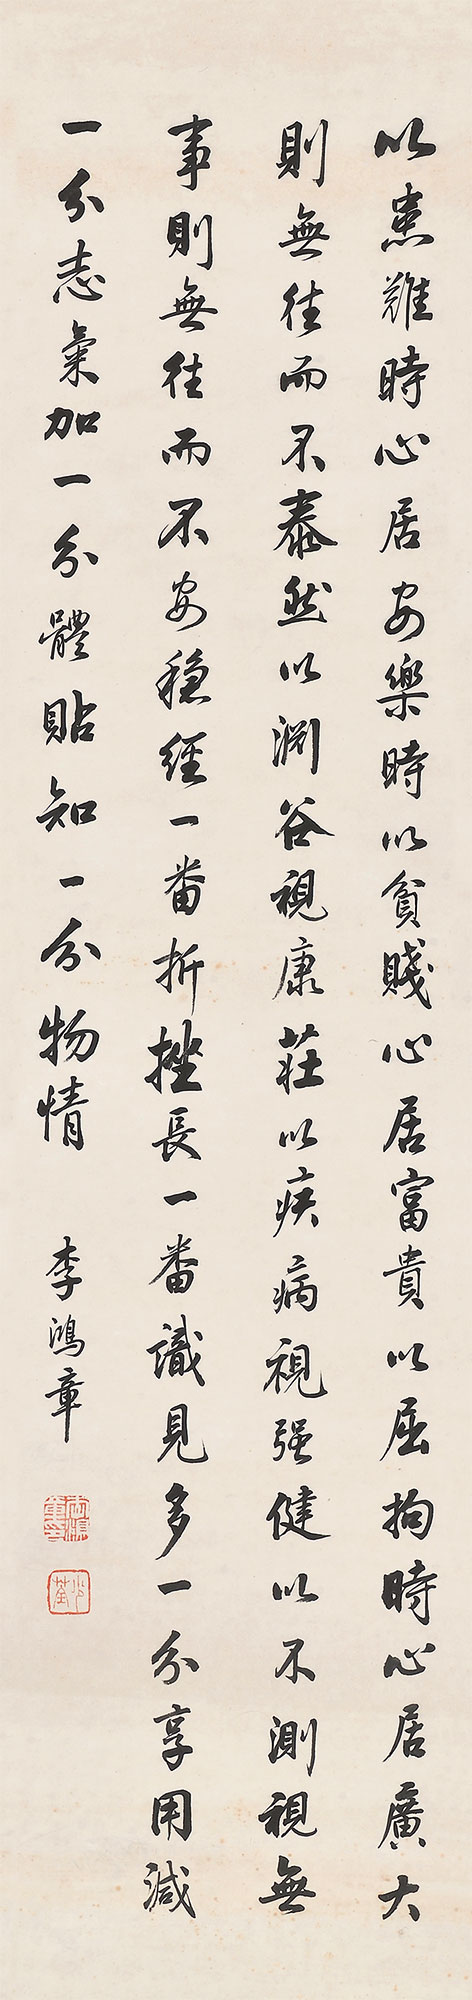 以患難時心居安樂時以貧賤心居富貴以屈拘時心居廣大
則無往而不泰然以淵谷視康莊以疾病視强健以不測視無
事則無往而不安穩經一番折挫長一番識見多一分享用減
一分志氣加一分體貼知一分物情
李鴻章
李鴻章印
少荃